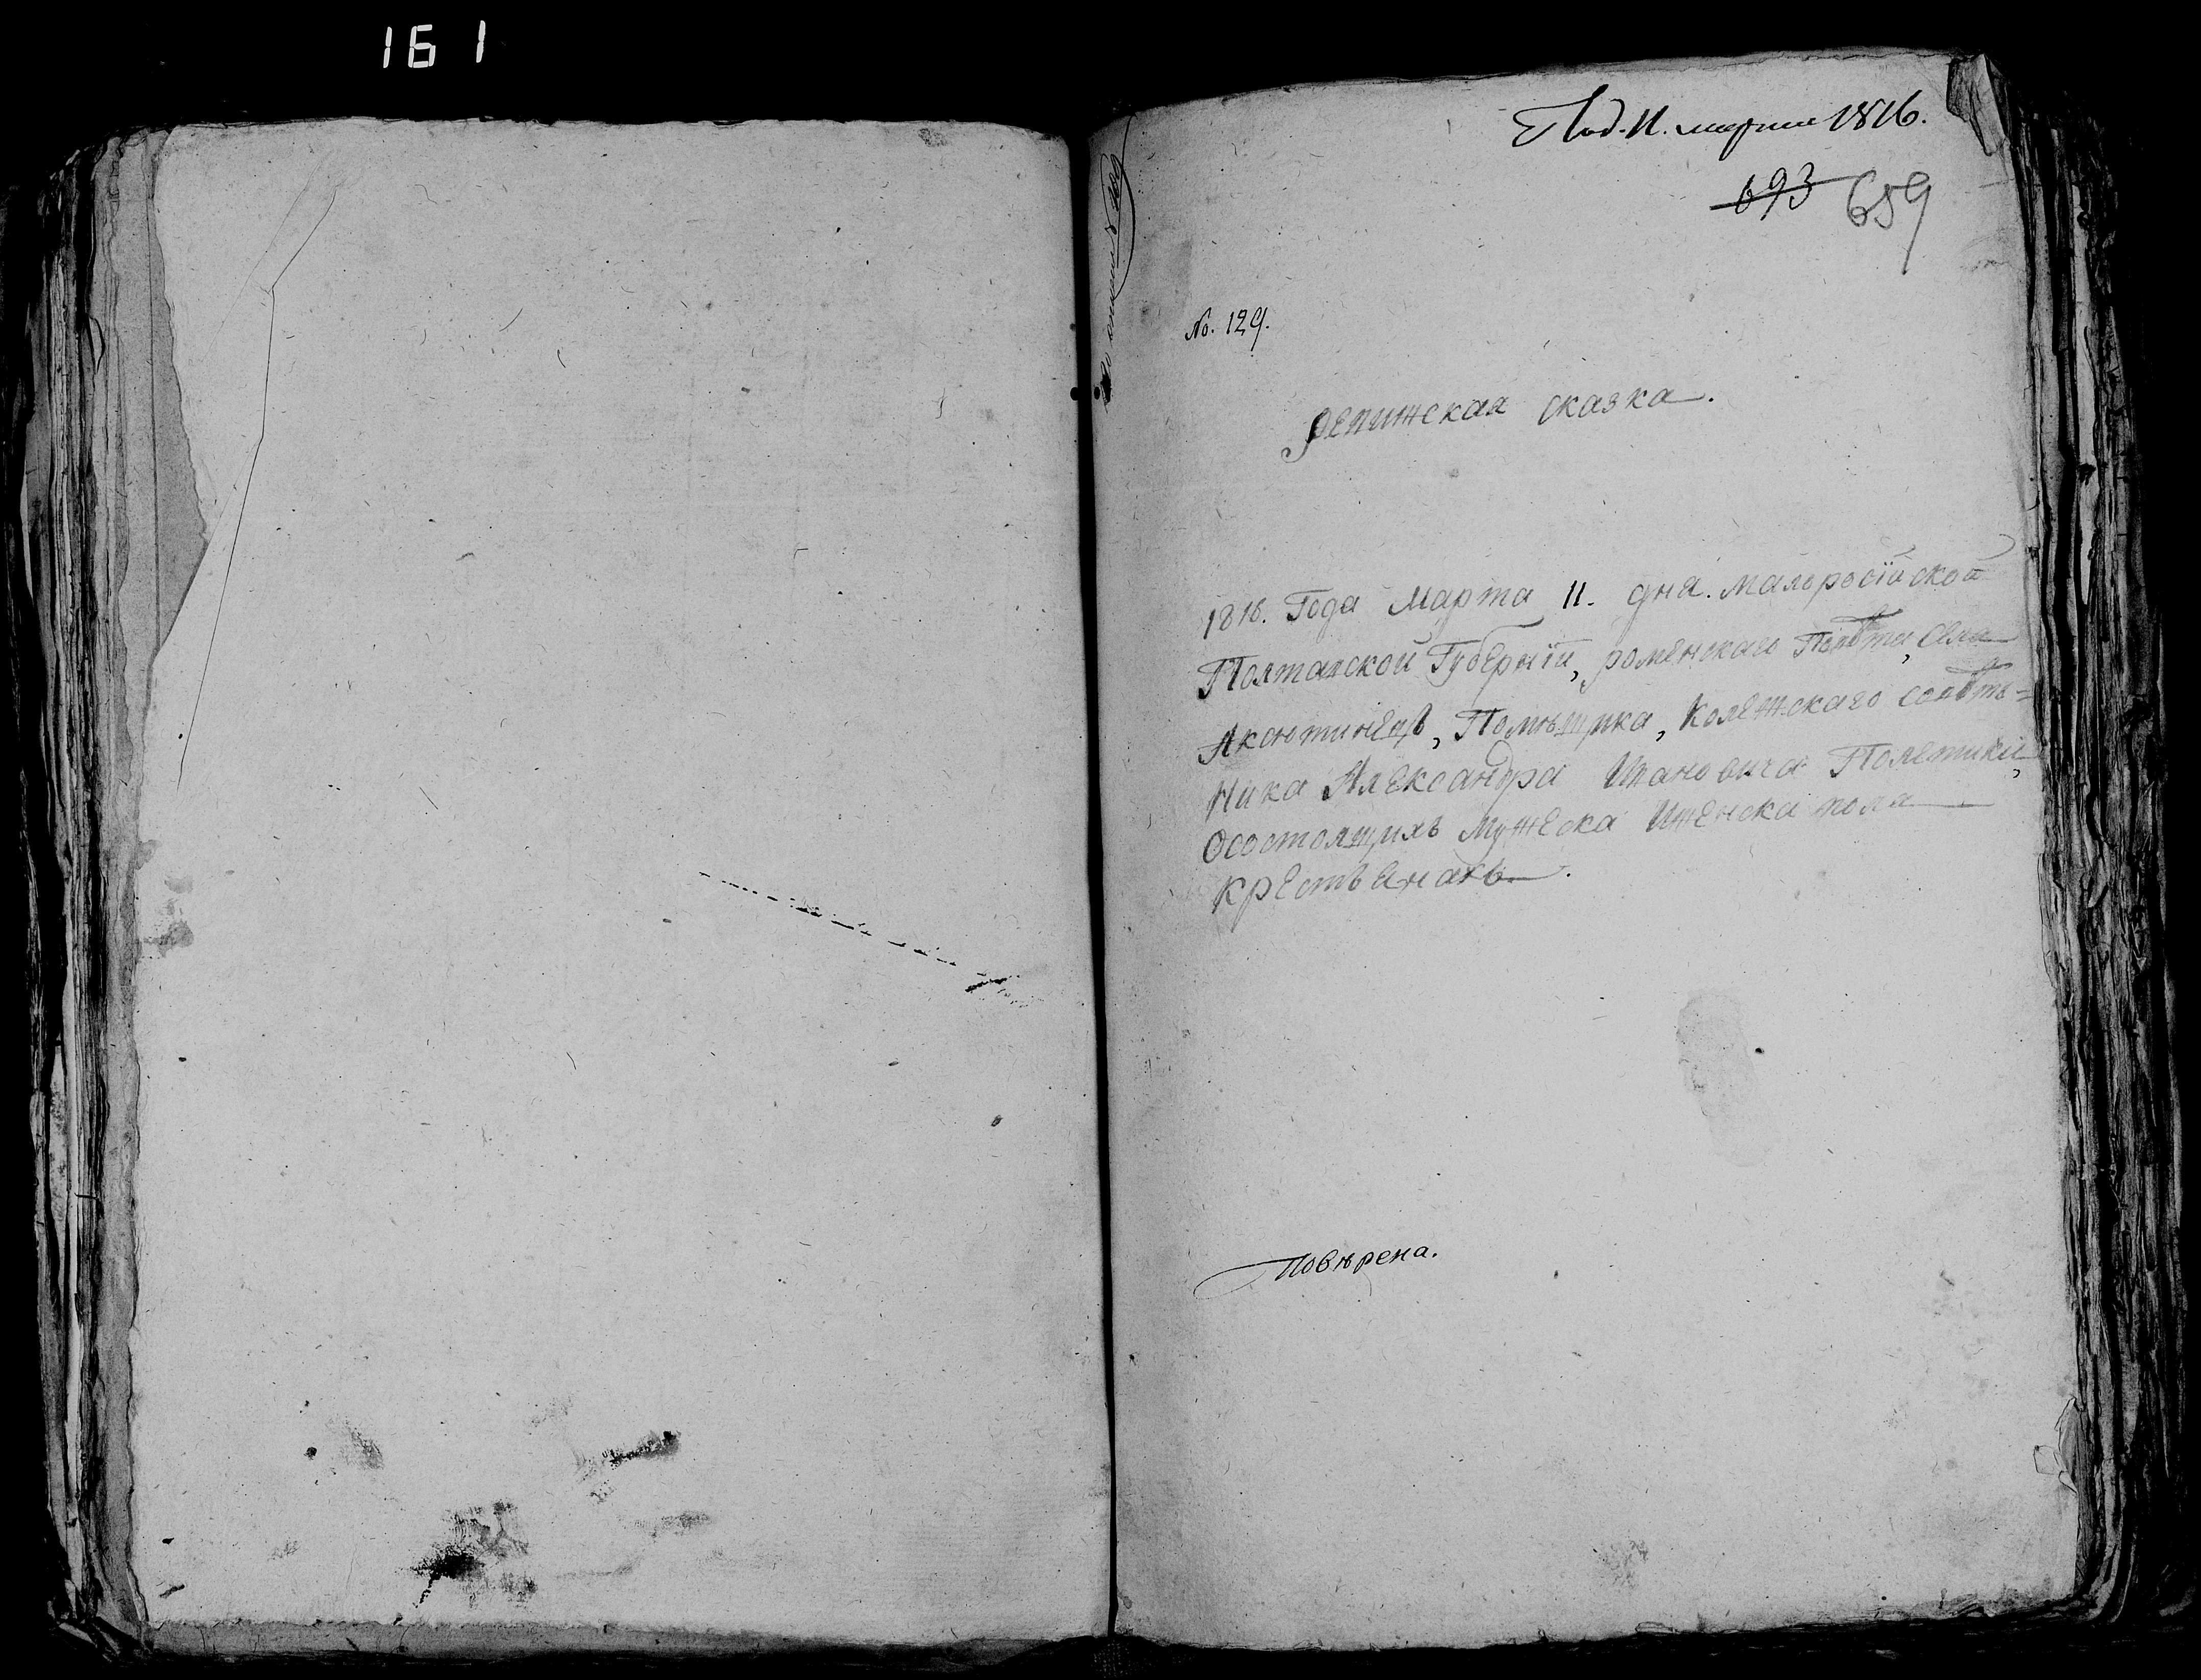 161
Под. 11. марта 1816.
693 659
No. 129.
Ревижская сказка.
1816. Года Марта 11. дня. Малоросїйской
Полтавской Губернїи, роменского Повѣта, Села
Аксютинецъ, Помѣщика, Колежскаго совѣтъ=
Ника Александра Ивановича Полетики,
Осостоящихъ Мужеска Иженска пола
Крестьянахъ.
Повѣрена.